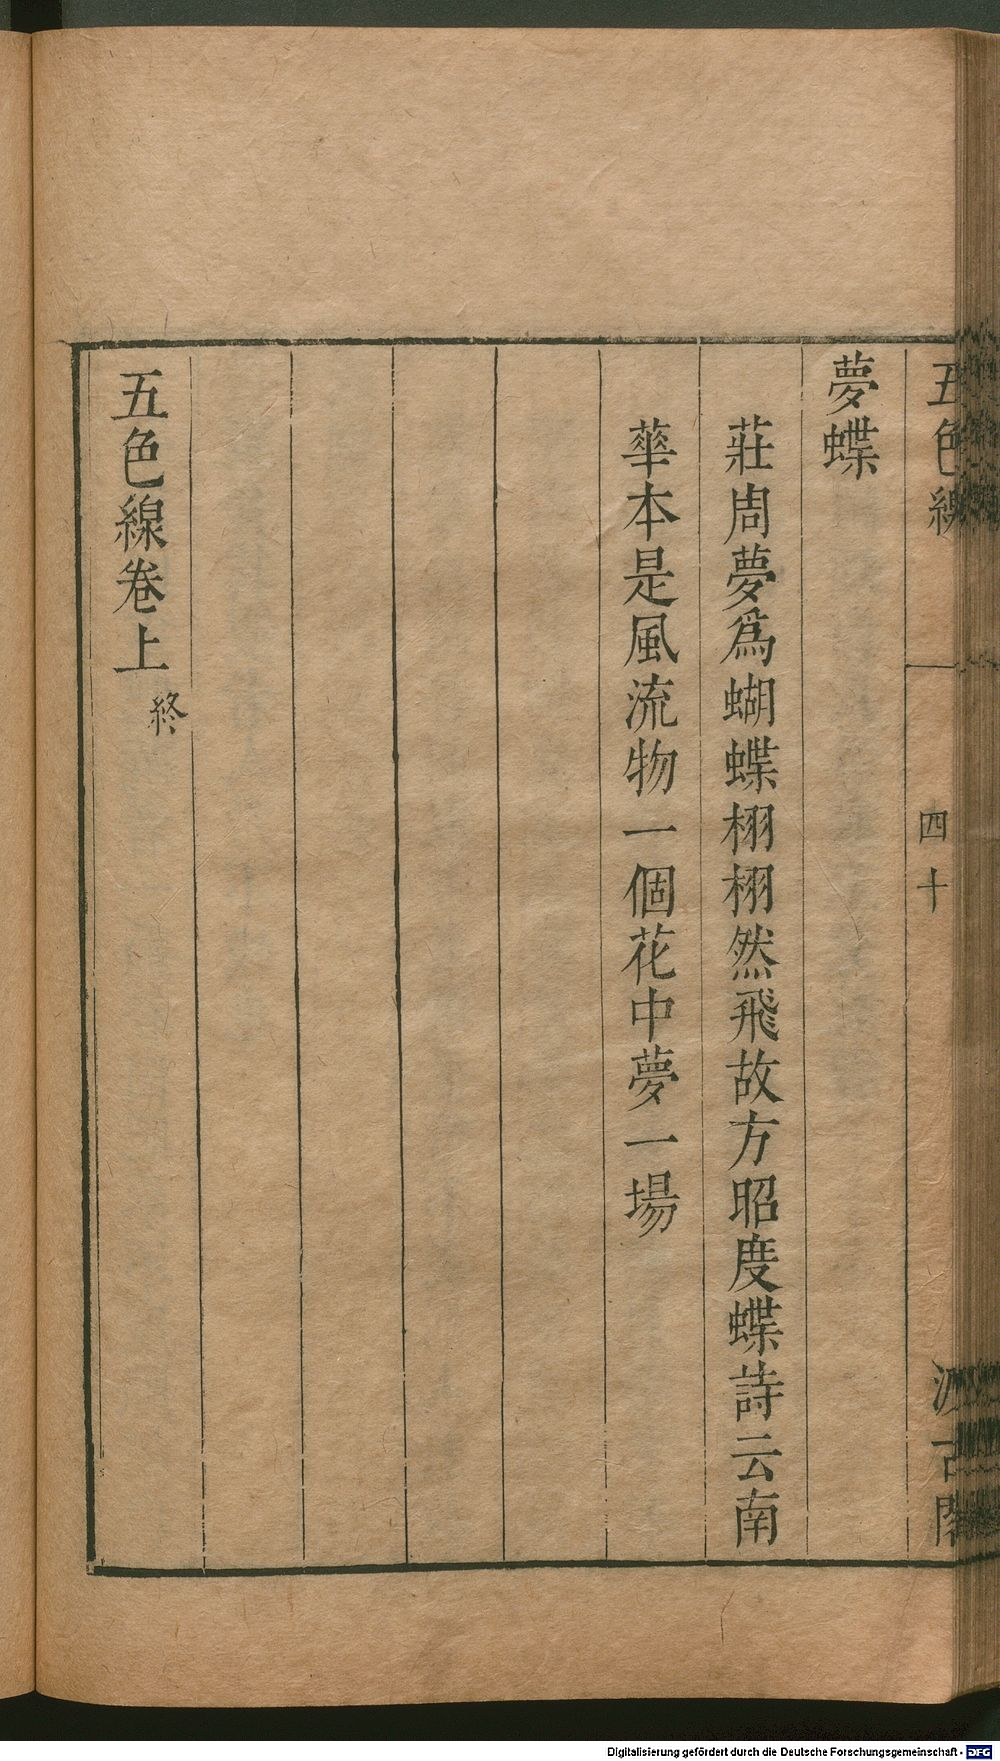 五色線
四十
汲古閣
夢蝶
莊周夢爲蝴蝶栩栩然飛故方昭度蝶詩云南
華本是風流物一個花中夢一場
五色線卷上
終
Digitalisierung gefördert durch die Deutsche Forschungsgemeinschaft - DFG